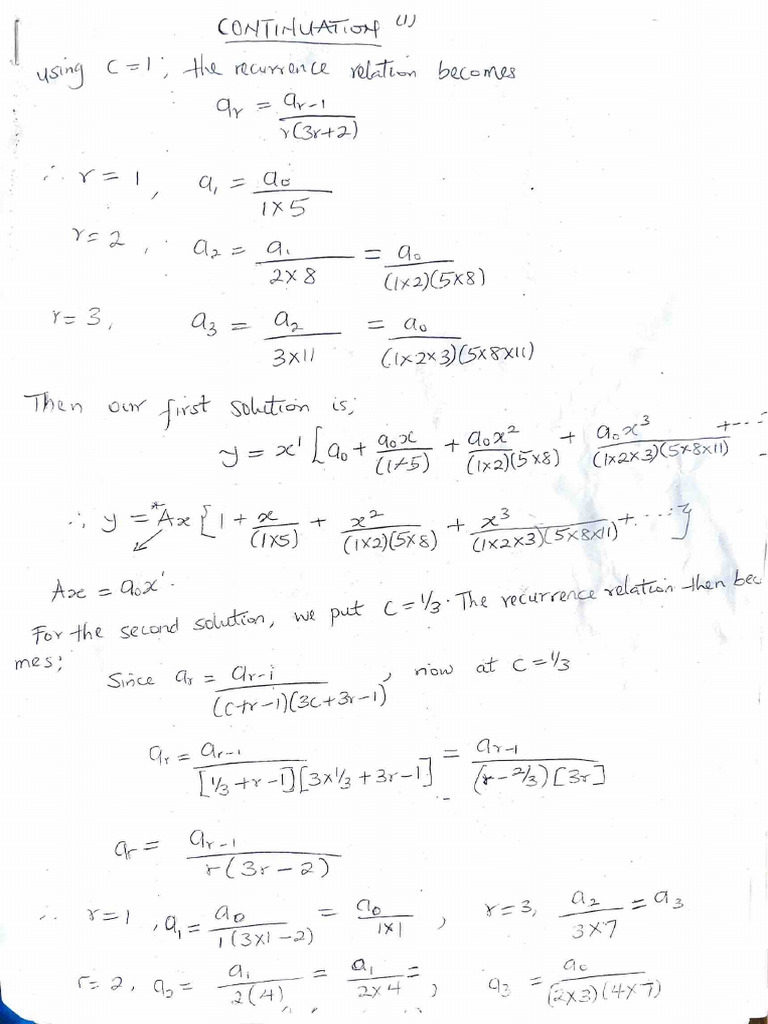 CONTINUATION (1)
using C=1; the recurrence relation becomes
aᵣ = aᵣ₋₁ / r(3r+2)
∴ r = 1, a₁ = a₀ / 1×5
r = 2, a₂ = a₁ / 2×8 = a₀ / (1×2)(5×8)
r = 3, a₃ = a₂ / 3×11 = a₀ / (1×2×3)(5×8×11)
Then our first solution is;
y = x¹ [a₀ + a₀x / (1×5) + a₀x² / (1×2)(5×8) + a₀x³ / (1×2×3)(5×8×11) + ...
∴ y = *Ax {1 + x / (1×5) + x² / (1×2)(5×8) + x³ / (1×2×3)(5×8×11) + ...}
Ax = a₀x¹.
For the second solution, we put C = 1/3. The recurrence relation then bec
mes;
Since aᵣ = aᵣ₋₁ / (c+r-1)(3c+3r-1), now at C = 1/3
aᵣ = aᵣ₋₁ / [1/3+r-1][3×1/3+3r-1] = aᵣ₋₁ / (r-2/3)[3r]
aᵣ = aᵣ₋₁ / r(3r-2)
∴ r=1, a₁ = a₀ / 1(3×1-2) = a₀ / 1×1, r=3, a₂ / 3×7 = a₃
r=2, a₂ = a₁ / 2(4) = a₁ / 2×4 = , a₃ = a₀ / (2×3)(4×7)